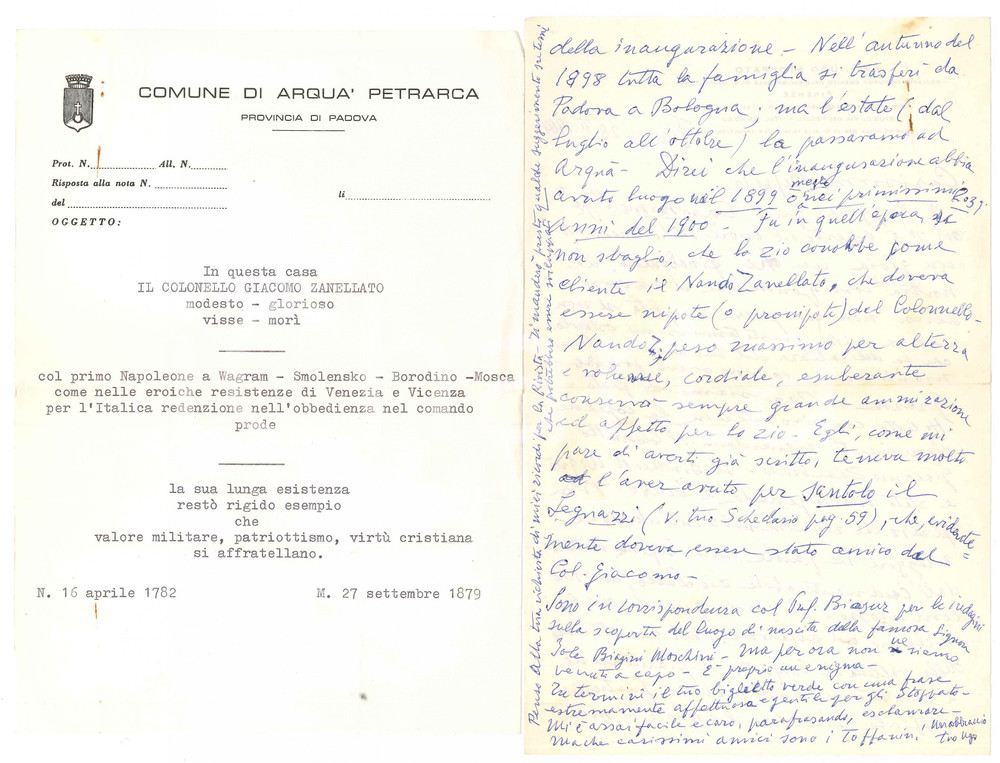 COMUNE DI ARQUA' PETRARCA
PROVINCIA DI PADOVA
Prot. N. All. N.
Risposta alla nota N.
del
li
OGGETTO:
In questa casa
IL COLONELLO GIACOMO ZANELLATO
modesto - glorioso
visse - morì
col primo Napoleone a Wagram - Smolensko - Borodino -Mosca
come nelle eroiche resistenze di Venezia e Vicenza
per l'Italica redenzione nell'obbedienza nel comando
prode
la sua lunga esistenza
restò rigido esempio
che
valore militare, patriottismo, virtù cristiana
si affratellano.
N. 16 aprile 1782 M. 27 settembre 1879
della inaugurazione - Nell'autunno del
1898 tutta la famiglia si trasferì da
Padova a Bologna; ma l'estate (dal
luglio all'ottobre) la passavamo ad
Arquà - Direi che l'inaugurazione abbia
avuto luogo nel 1899 o nei primissimi
anni del 1900 - Fu in quell'epoca, se
non sbaglio, che lo zio conobbe come
cliente il Nando Zanellato, che doveva
essere nipote (o pronipote) del Colonnello -
Nando Z., peso massimo per altezza
e volume, cordiale, esuberante
conservò sempre grande ammirazione
ed affetto per lo zio - Egli, come mi
pare di averti già scritto, teneva molto
l'aver avuto per santolo il
Legnazzi (v. tuo Schedario pag. 59), che, evidente=
mente doveva essere stato amico del
Col. Giacomo -
Sono in corrispondenza col Prof. Biasuz per le indagini
sulla scoperta del luogo di nascita della famosa Signora
Jole Biagini Moschini - ma per ora non ne siamo
venuti a capo - È proprio un enigma -
Tu termini il tuo biglietto verde con una frase
estremamente affettuosa e gentile per gli Stoppato -
Mi è assai facile e caro, parafrasando, esclamare -
ma che carissimi amici sono i Toffanin! Un abbraccio
tuo Ugo
Penso alla tua richiesta di miei ricordi per la Rivista. Ti manderò presto qualche suggerimento su temi
che potrebbero essere sviluppati